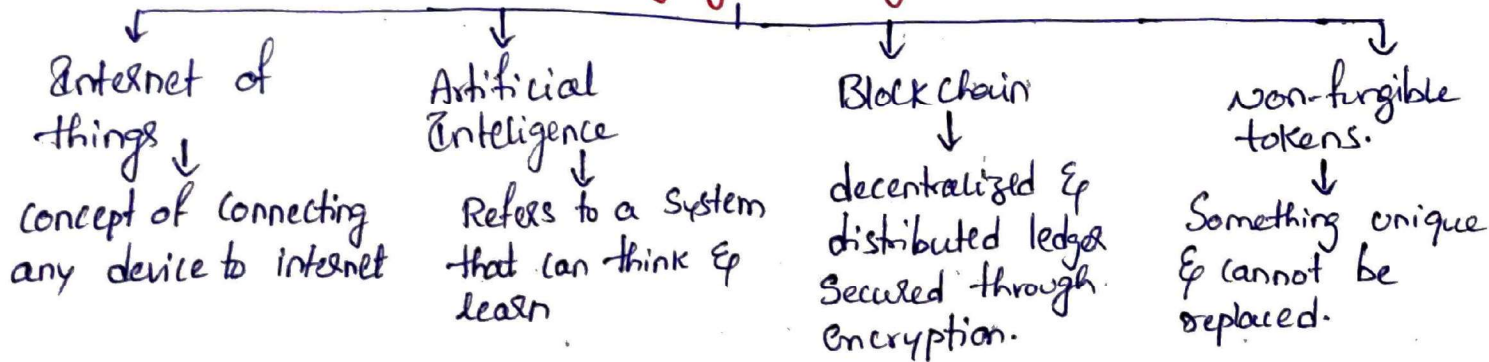 Internet of
things
concept of connecting
any device to internet
Artificial
Inteligence
Refers to a System
that can think &
learn
Block chain
decentralized &
distributed ledger
Secured through
encryption.
Non-fungible
tokens.
Something unique
& cannot be
replaced.